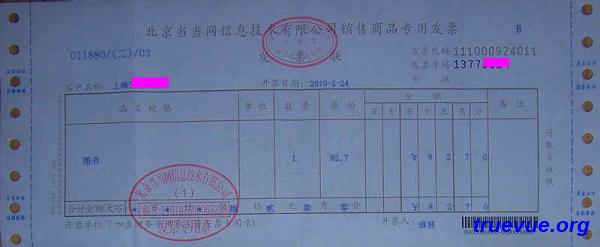 北京当当网信息技术有限公司销售商品专用发票 B
011880/(二)/03
发票联
发票代码 111000924011
发票号码 1377
密码
客户名称: 上海
开票日期: 2010-2-24
品名规格 单位 数量 单价 金额 备注
百 千 百 十 元 角 分
图书 1 82.7 ¥ 8 2 7 0
合计金额(大写) 捌 拾 贰 元 柒 角 零 分 ¥ 8 2 7 0
北京当当网信息技术有限公司
(1)
发票专用章
开票单位(加盖财务章或发票专用章) 开票人:
truevue.org